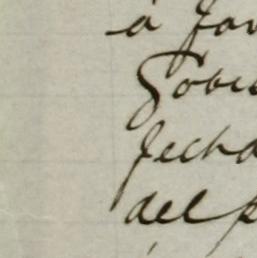 a fav
Gobie
fecha
del p